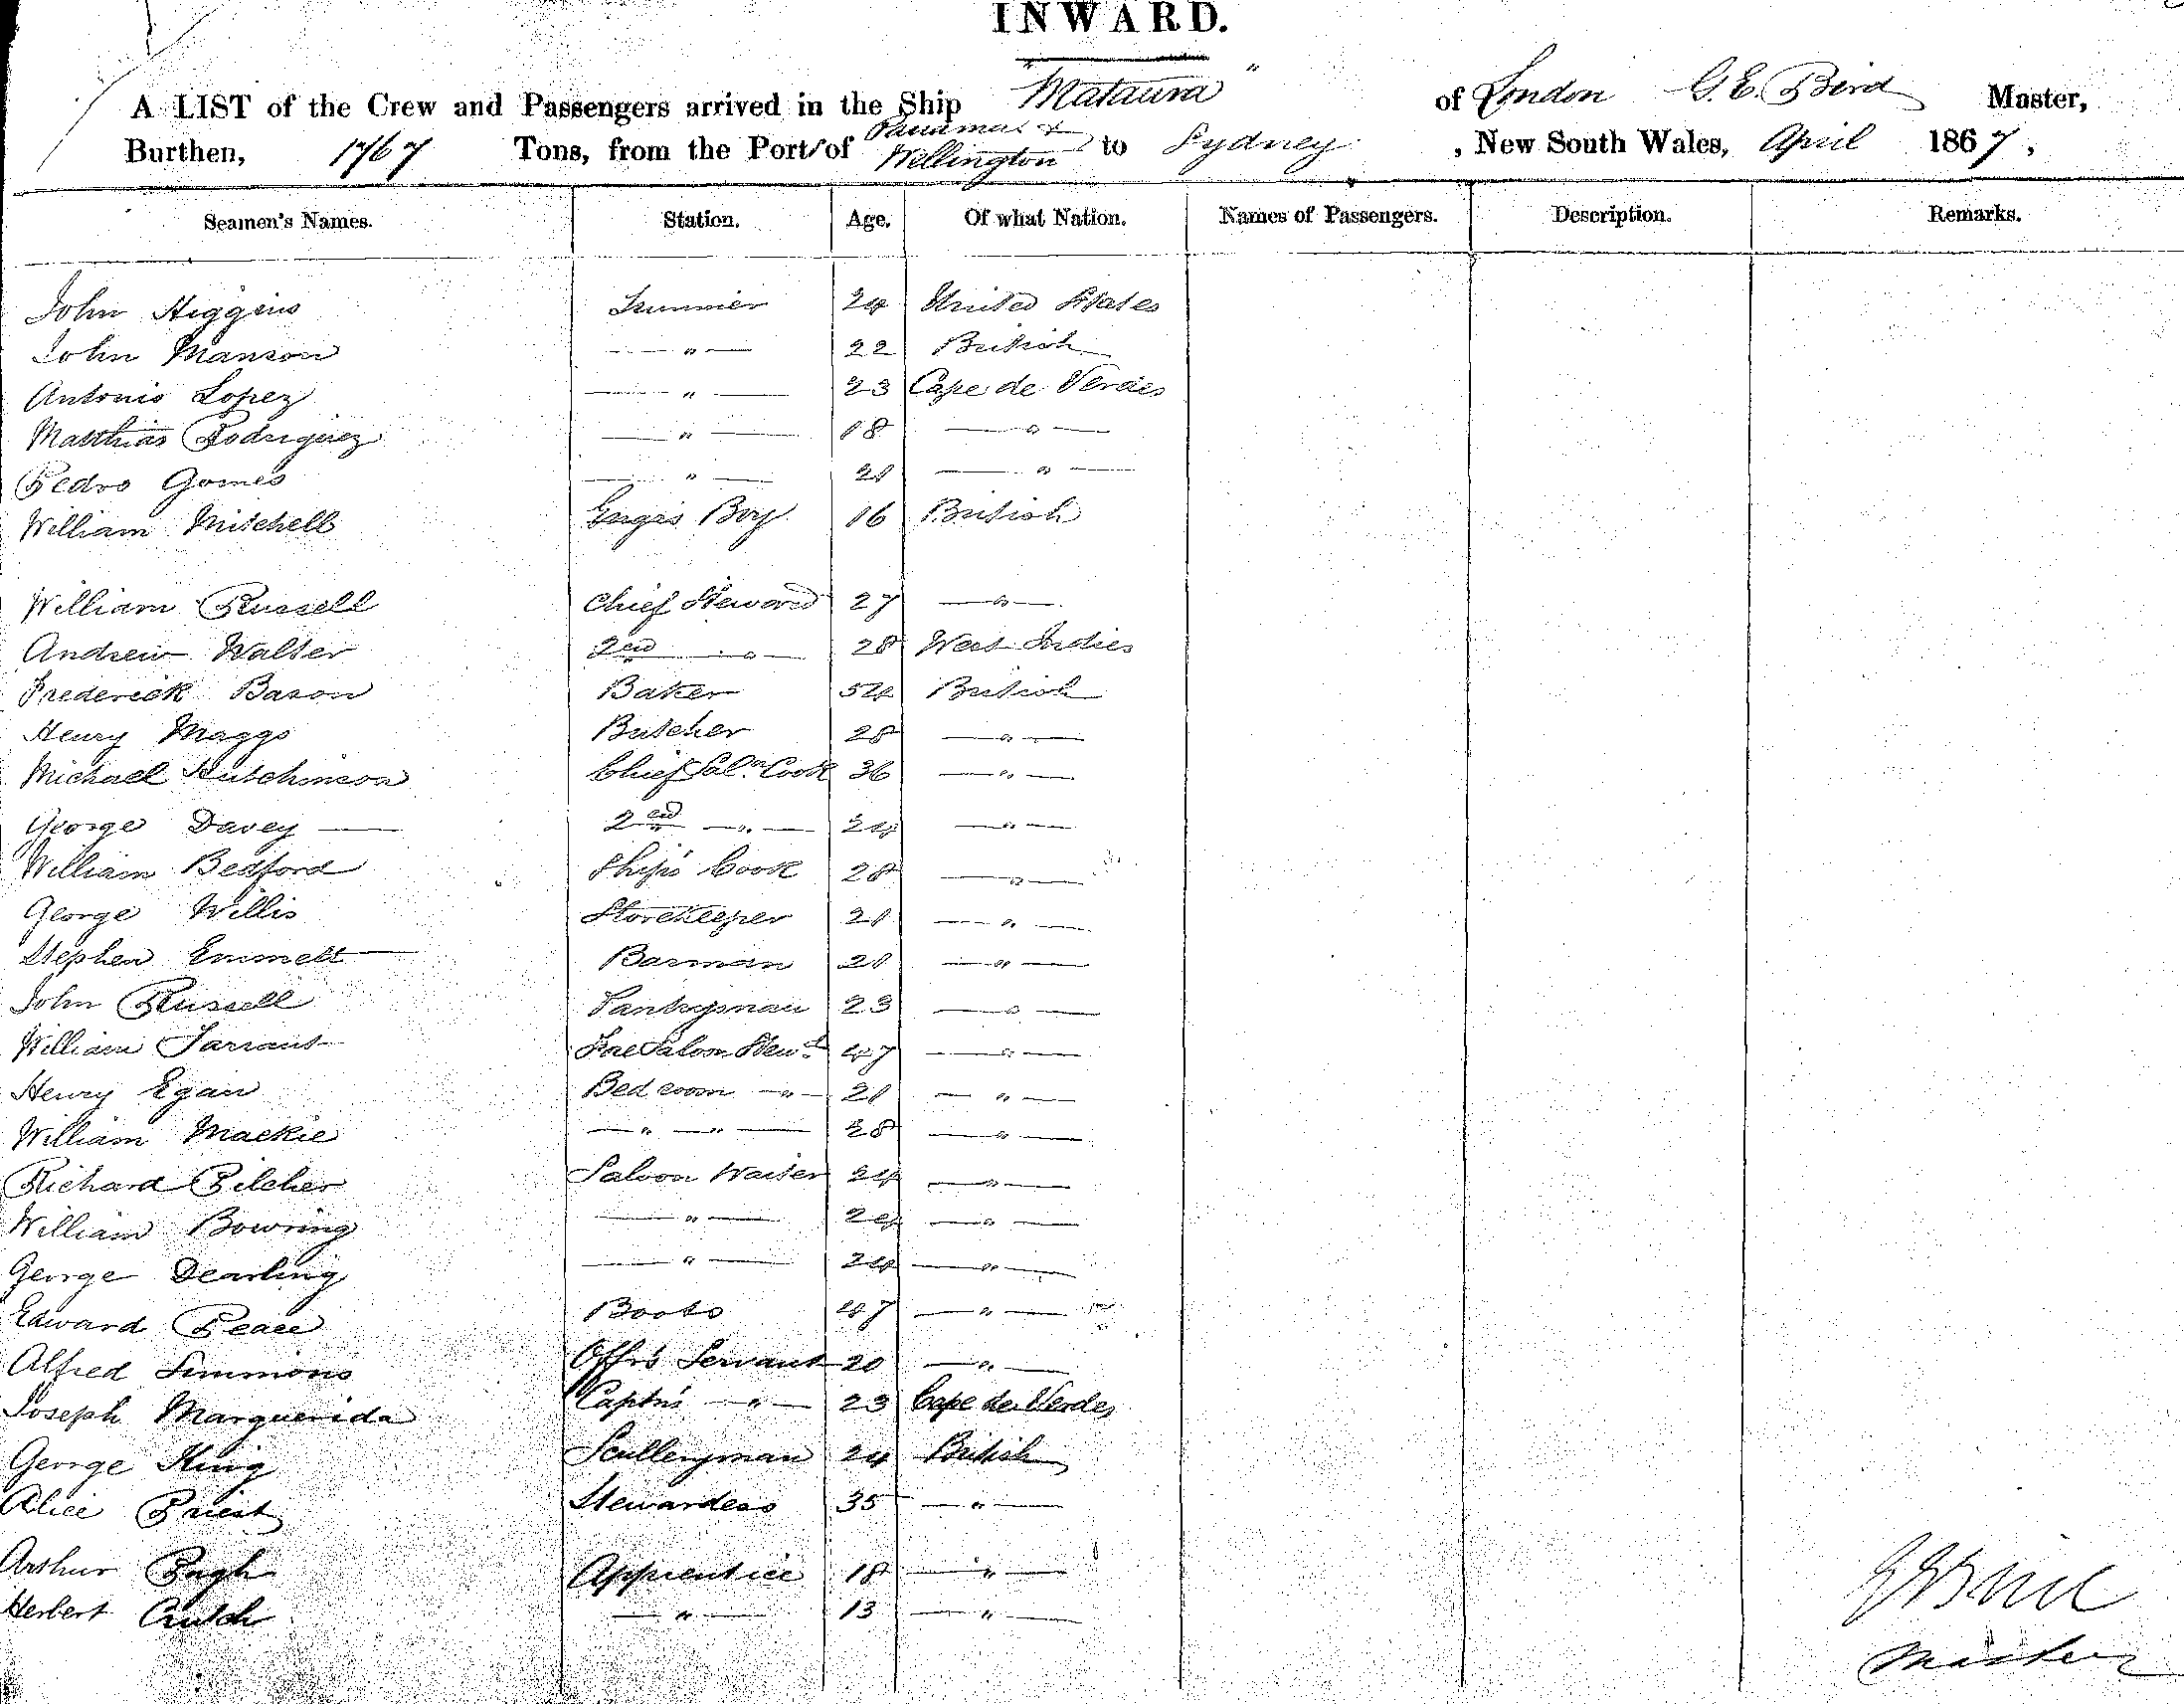 INWARD.
A LIST of the Crew and Passengers arrived in the Ship "Mataura" of London G. E. Bird Master,
Burthen, 1767 Tons, from the Port of Panama & Wellington to Sydney, New South Wales, April 1867,
Seamen's Names. Station. Age. Of what Nation. Names of Passengers. Description. Remarks.
John Higgins Trimmer 24 United States
John Manson " 22 British
Antonio Lopez " 23 Cape de Verdes
Matthias Rodrigeiez " 18 "
Pedro Gomes " 21 "
William Mitchell Engrs Boy 16 British
William Russell Chief Steward 27 "
Andrew Walter 2nd " 28 West Indies
Frederick Bason Baker 54 British
Henry Maggs Butcher 28 "
Michael Hutchinson Chief Saln Cook 36 "
George Davey 2nd " 24 "
William Bedford Ship's Cook 28 "
George Willis Storekeeper 21 "
Stephen Emmett Barman 21 "
John Russell Pantryman 23 "
William Tarrant Fore Saloon Stewd 47 "
Henry Egan Bedroom " 21 "
William Mackie " " 28 "
Richard Pilcher Saloon Waiter 24 "
William Bowring " 24 "
George Dearling " 24 "
Edward Peace Boots 47 "
Alfred Simmons Offrs Servant 20 "
Joseph Marguerida Captns " 23 Cape de Verdes
George King Sculleryman 24 British
Alice Priest Stewardess 35 "
Arthur Pugh Apprentice 18 "
Herbert Crutch " 13 "
Master